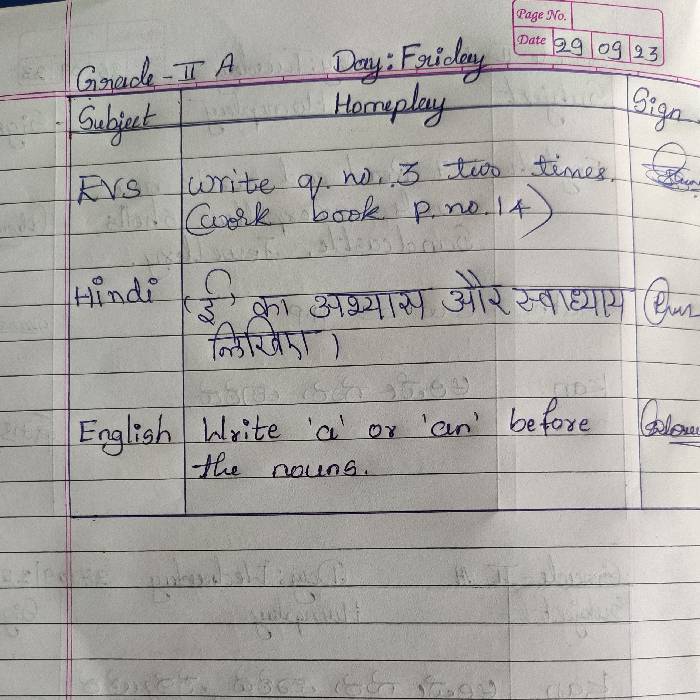 Page No.
Date 29 09 23
Grade - II A Day: Friday
Subject Homeplay Sign
EVS Write q. no. 3 two times.
(work book p. no. 14)
Hindi 'ई' का अभ्यास और स्वाध्याय
लिखिए।
English Write 'a' or 'an' before
the nouns.